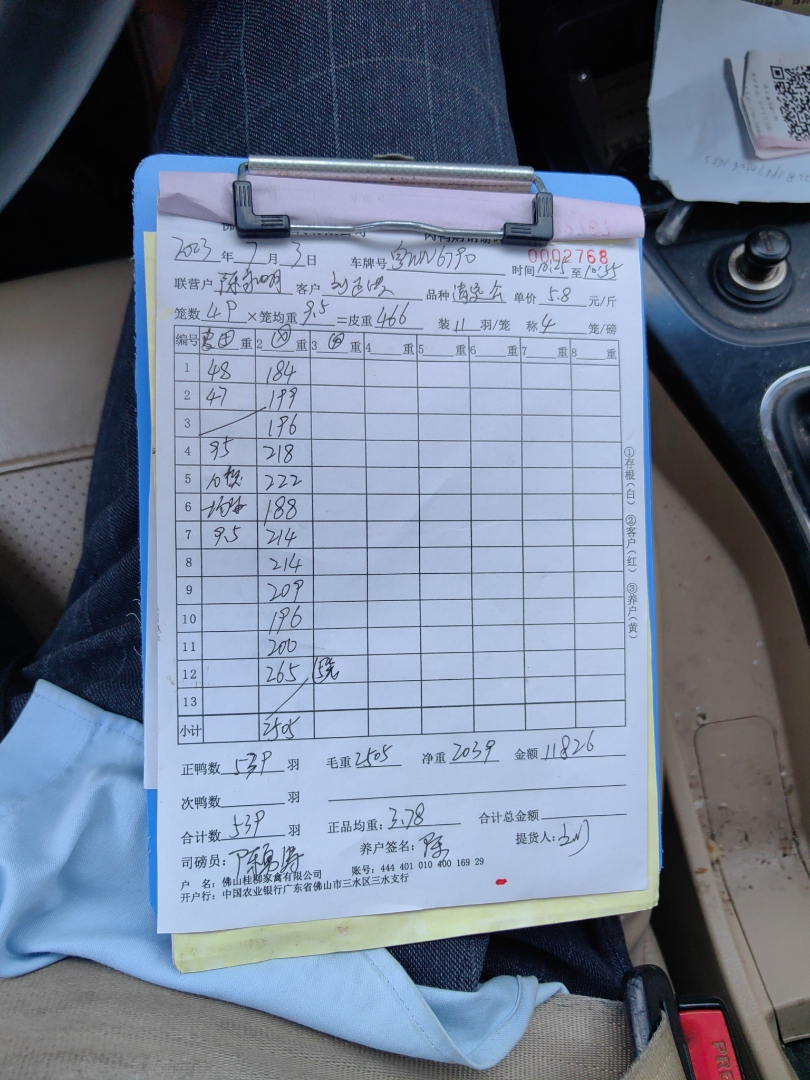 0002768
2023 年 7 月 3 日 车牌号 粤WN6790 时间 10:25 至 10:35
联营户 陈永明 客户 品种 单价 5.8 元/斤
笼数 49 ×笼均重 9.5 =皮重 466 装 11 羽/笼 称 4 笼/磅
编号 重 2 重 3 重 4 重 5 重 6 重 7 重 8 重
1 48 184
2 47 199
3 196
4 95 218
5 10笼 222
6 均重 188
7 9.5 214
8 214
9 209
10 196
11 200
12 265 5笼
13
小计 2505
正鸭数 539 羽 毛重 2505 净重 2039 金额 11826
次鸭数 羽
合计数 539 羽 正品均重: 3.78 合计总金额
司磅员: 养户签名: 陈 提货人:
户 名: 佛山桂柳家禽有限公司 账号: 444 401 010 400 169 29
开户行: 中国农业银行广东省佛山市三水区三水支行
①存根(白) ②客户(红) ③养户(黄)